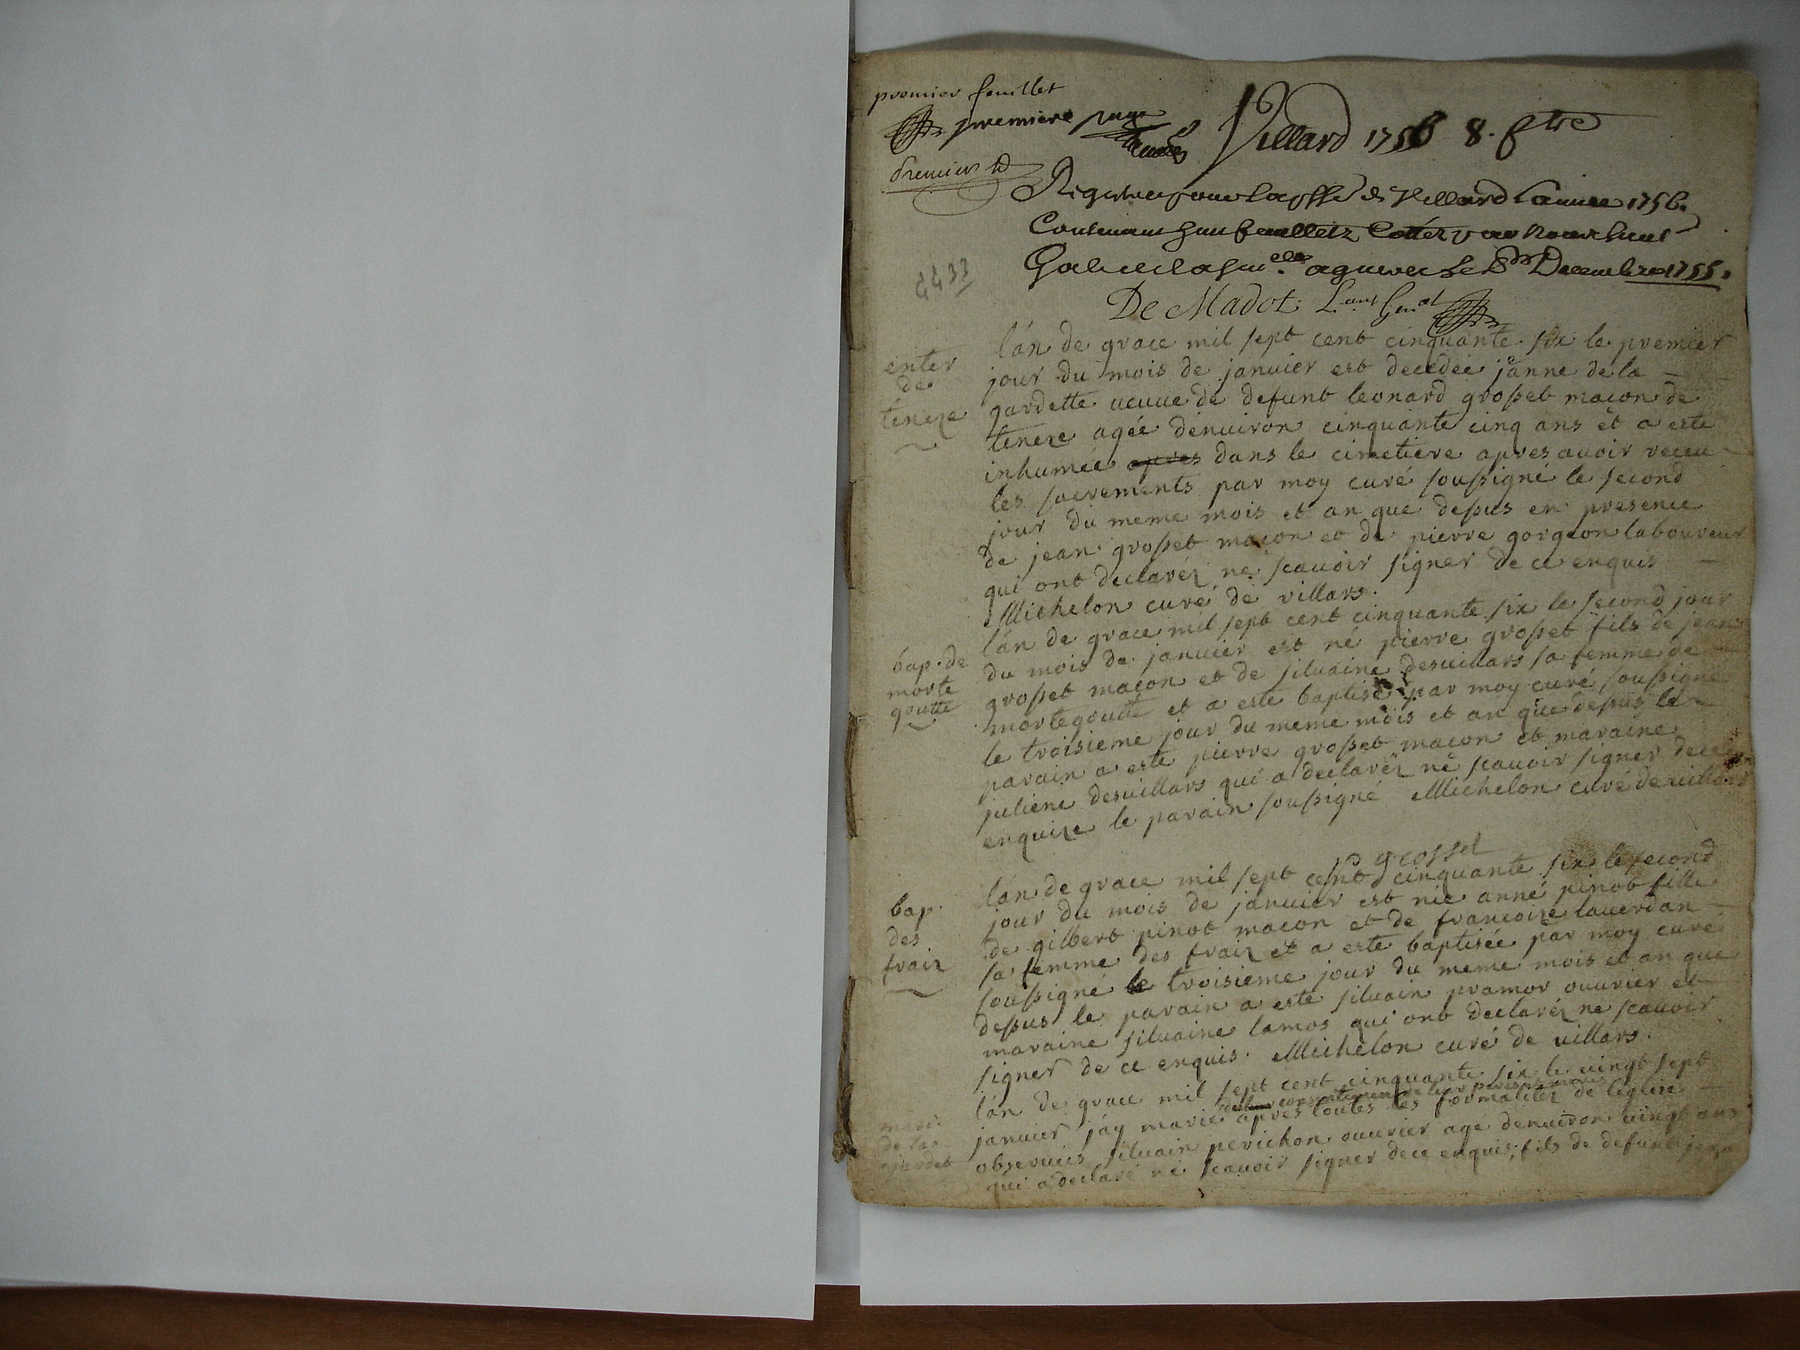 premier feuillet
premiere page
Villard 1756 8. ftre
premier
Registre pour la psse de Villard Lannee 1756.
Contenant huit feuilletz Cottez par Nous
a gueret le Decembre 1755.
De Madot. L.ant Gen.al
enter
de
teneze
lán de grace mil sept cent cinquante six le premier
jour du mois de janvier est decedée jánne de la
gardette veuve de defunt leonard grosset maçon de
teneze agée denuiron cinquante cinq ans et a esté
inhumée apres dans le cimetiere apres avoir receu
les sacrements par moy curé soussigné le second
jour du meme mois et an que dessus en presence
de jean grosset maçon et de pierre gorgeon laboureur
qui ont declarez ne scavoir signer de ce enquis
Michelon curé de villars.
bap. de
morte
goutte
lán de grace mil sept cent cinquante six le second jour
du mois de janvier est né pierre grosset fils de jean
grosset maçon et de siluaine desuillars sa femme de
mortegoutte et a esté baptisé par moy curé soussigné
le troisieme jour du meme mois et an que dessus le
parain a esté pierre grosset maçon et maraine
juliene desuillars qui a declarez ne scavoir signer de ce
enquize le parain soussigné Michelon curé de villars
p grosset
bap.
des
fraiz
lán de grace mil sept cent cinquante six le second
jour du mois de janvier est née anne pinot fille
de gilbert pinot maçon et de francoize lauerdan
sa femme des fraiz et a esté baptisée par moy curé
soussigné le troisieme jour du meme mois et an que
dessus le parain a esté siluain pramor ouurier et
maraine siluaine lamos qui ont declarez ne scavoir
signer de ce enquis. Michelon curé de villars.
mari
de la
gardet
lán de grace mil sept cent cinquante six le vingt sept
consentement de leur
janvier jáy marié apres toutes les formalitez de leglize
obseruees siluain perichon ouurier agé denuiron vingt ans
qui a declaré ne scavoir signer de ce enquis, fils de defunt jean